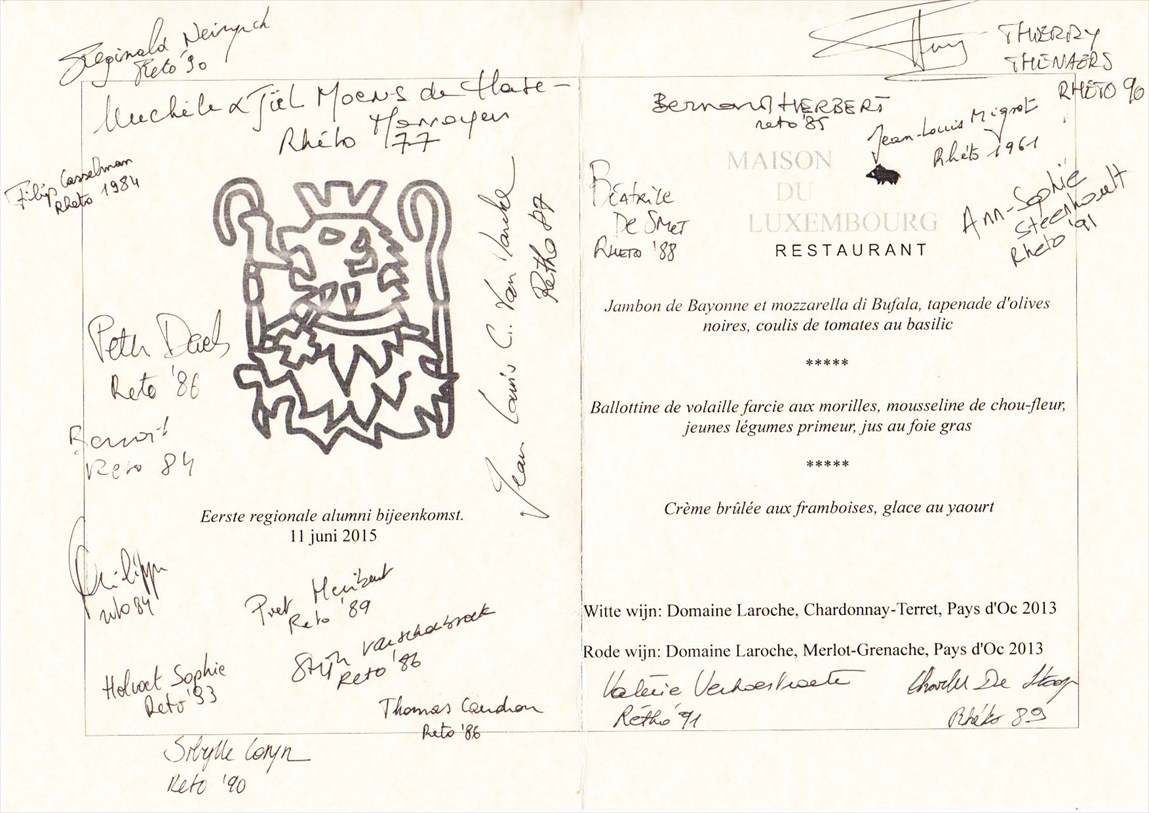 Reginald Neirynck
Reto '90
Michèle & Tjel Moens de Hase-
Rhéto
77
Filip Casselman
Rheto 1984
Jean Louis C. Van
Rétho 77
Peter Daels
Reto '86
Benoit
Reto 84
Eerste regionale alumni bijeenkomst.
11 juni 2015
Philippe
reto 84
Piet
Reto '89
Stijn Vanschoubroek
Reto '86
Holvoet Sophie
Reto '93
Thomas Caudron
Reto '86
Sibylle Loryn
Reto '90
THIERRY
THENAERS
RHÉTO 90
Bernard HERBERT
reto '85
Jean-Louis Mignot
Rhéto 1961
MAISON
DU
LUXEMBOURG
RESTAURANT
Béatrice
De Smet
Rheto '88
Ann-Sophie
Steenhoult
Rhéto '91
Jambon de Bayonne et mozzarella di Bufala, tapenade d'olives
noires, coulis de tomates au basilic
*****
Ballottine de volaille farcie aux morilles, mousseline de chou-fleur,
jeunes légumes primeur, jus au foie gras
*****
Crème brûlée aux framboises, glace au yaourt
Witte wijn: Domaine Laroche, Chardonnay-Terret, Pays d'Oc 2013
Rode wijn: Domaine Laroche, Merlot-Grenache, Pays d'Oc 2013
Valérie Verhoestraete
Rétho '91
Charles De Stoop
Rhéto 89